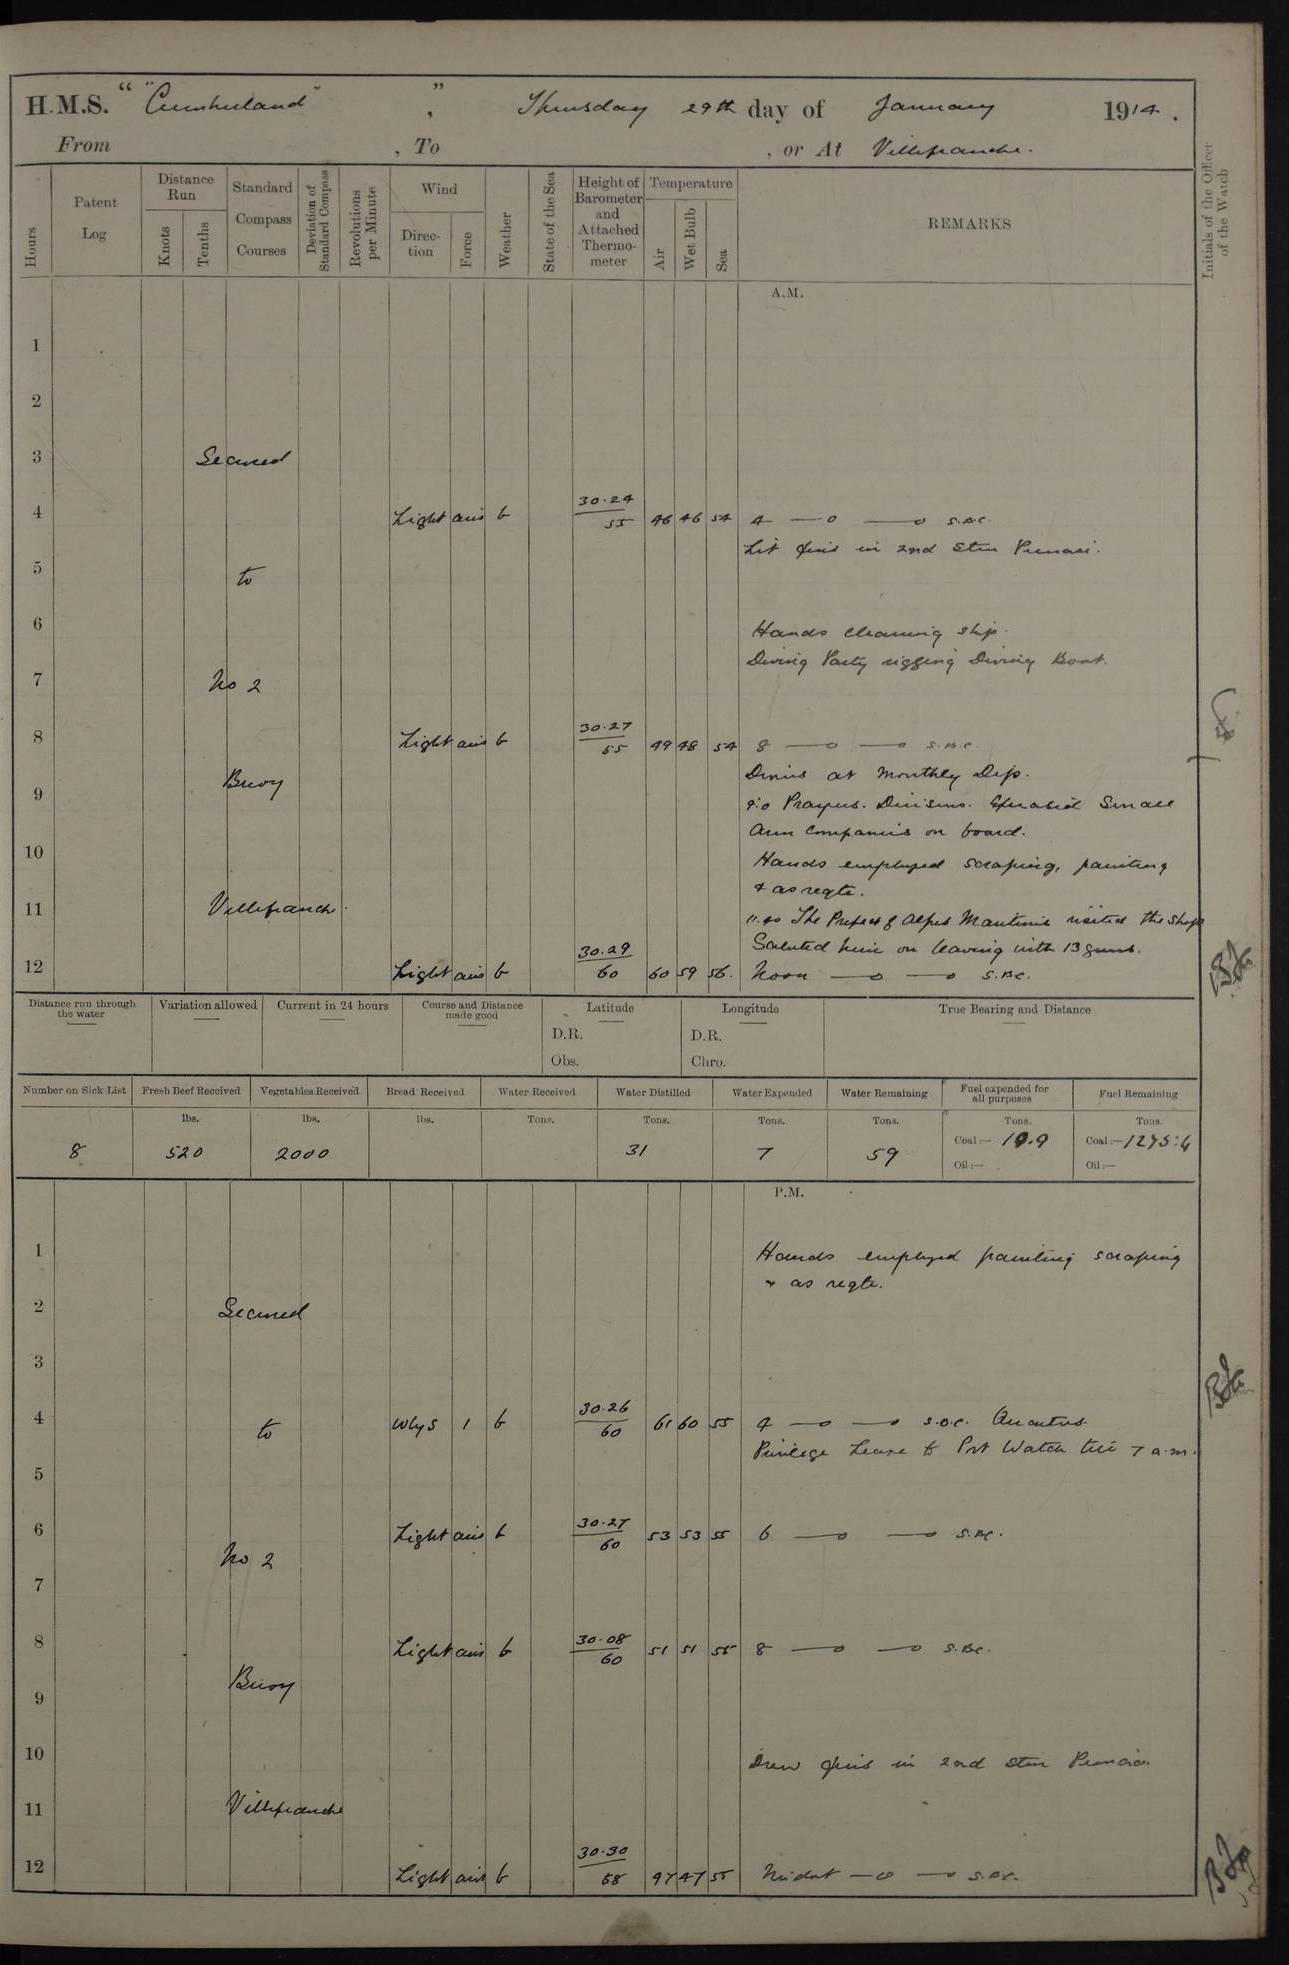 H.M.S. "Cumberland", Thursday 29th day of January 1914.
From , To , or At Villefranche.
Hours
Patent Log
Distance Run
Knots
Tenths
Standard Compass Courses
Deviation of Standard Compass
Revolutions per Minute
Wind
Direction
Force
Weather
State of the Sea
Height of Barometer and Attached Thermometer
Temperature
Air
Wet Bulb
Sea
REMARKS
Initials of the Officer of the Watch
A.M.
1
2
3 Secured
4 Light airs b 30.24 55 46 46 54 4 —o —o S.B.C.
Lit fires in 2nd Stm Pinnace.
5 to
6 Hands cleaning ship.
Diving Party rigging Diving Boat.
7 No 2
8 Light airs b 30.27 55 49 48 54 8 —o —o S.B.C.
Divers at Monthly Dip.
9 Buoy
9.0 Prayers. Divisions. Exercised Small
Arm Companies on board.
10 Hands employed scraping, painting
& as reqte.
11 Villefranche.
11.40 The Prefect of Alpes Maritimes visited the ship
Saluted him on leaving with 13 guns.
12 Light airs b 30.29 60 60 59 56. Noon —o —o S.B.C.
Distance run through the water
Variation allowed
Current in 24 hours
Course and Distance made good
Latitude
D.R.
Obs.
Longitude
D.R.
Chro.
True Bearing and Distance
Number on Sick List
Fresh Beef Received
Vegetables Received
Bread Received
Water Received
Water Distilled
Water Expended
Water Remaining
Fuel expended for all purposes
Fuel Remaining
lbs. lbs. lbs. Tons. Tons. Tons. Tons. Tons. Tons.
8 520 2000 31 7 59 Coal:— 19.9 Coal:— 1275:4
Oil:— Oil:—
P.M.
1 Hands employed painting scraping
& as reqte.
2 Secured
3
4 to Wly S 1 b 30.26 60 61 60 55 4 —o —o S.B.C. Quarters.
Privilege Leave to Port Watch till 7 a.m.
5
6 Light airs b 30.27 60 53 53 55 6 —o —o S.B.C.
No 2
7
8 Light airs b 30.08 60 51 51 55 8 —o —o S.B.C.
Buoy
9
10 Drew fires in 2nd Stm Pinnace
11 Villefranche
12 Light airs b 30.30 58 47 47 55 Midnt —o —o S.B.C.